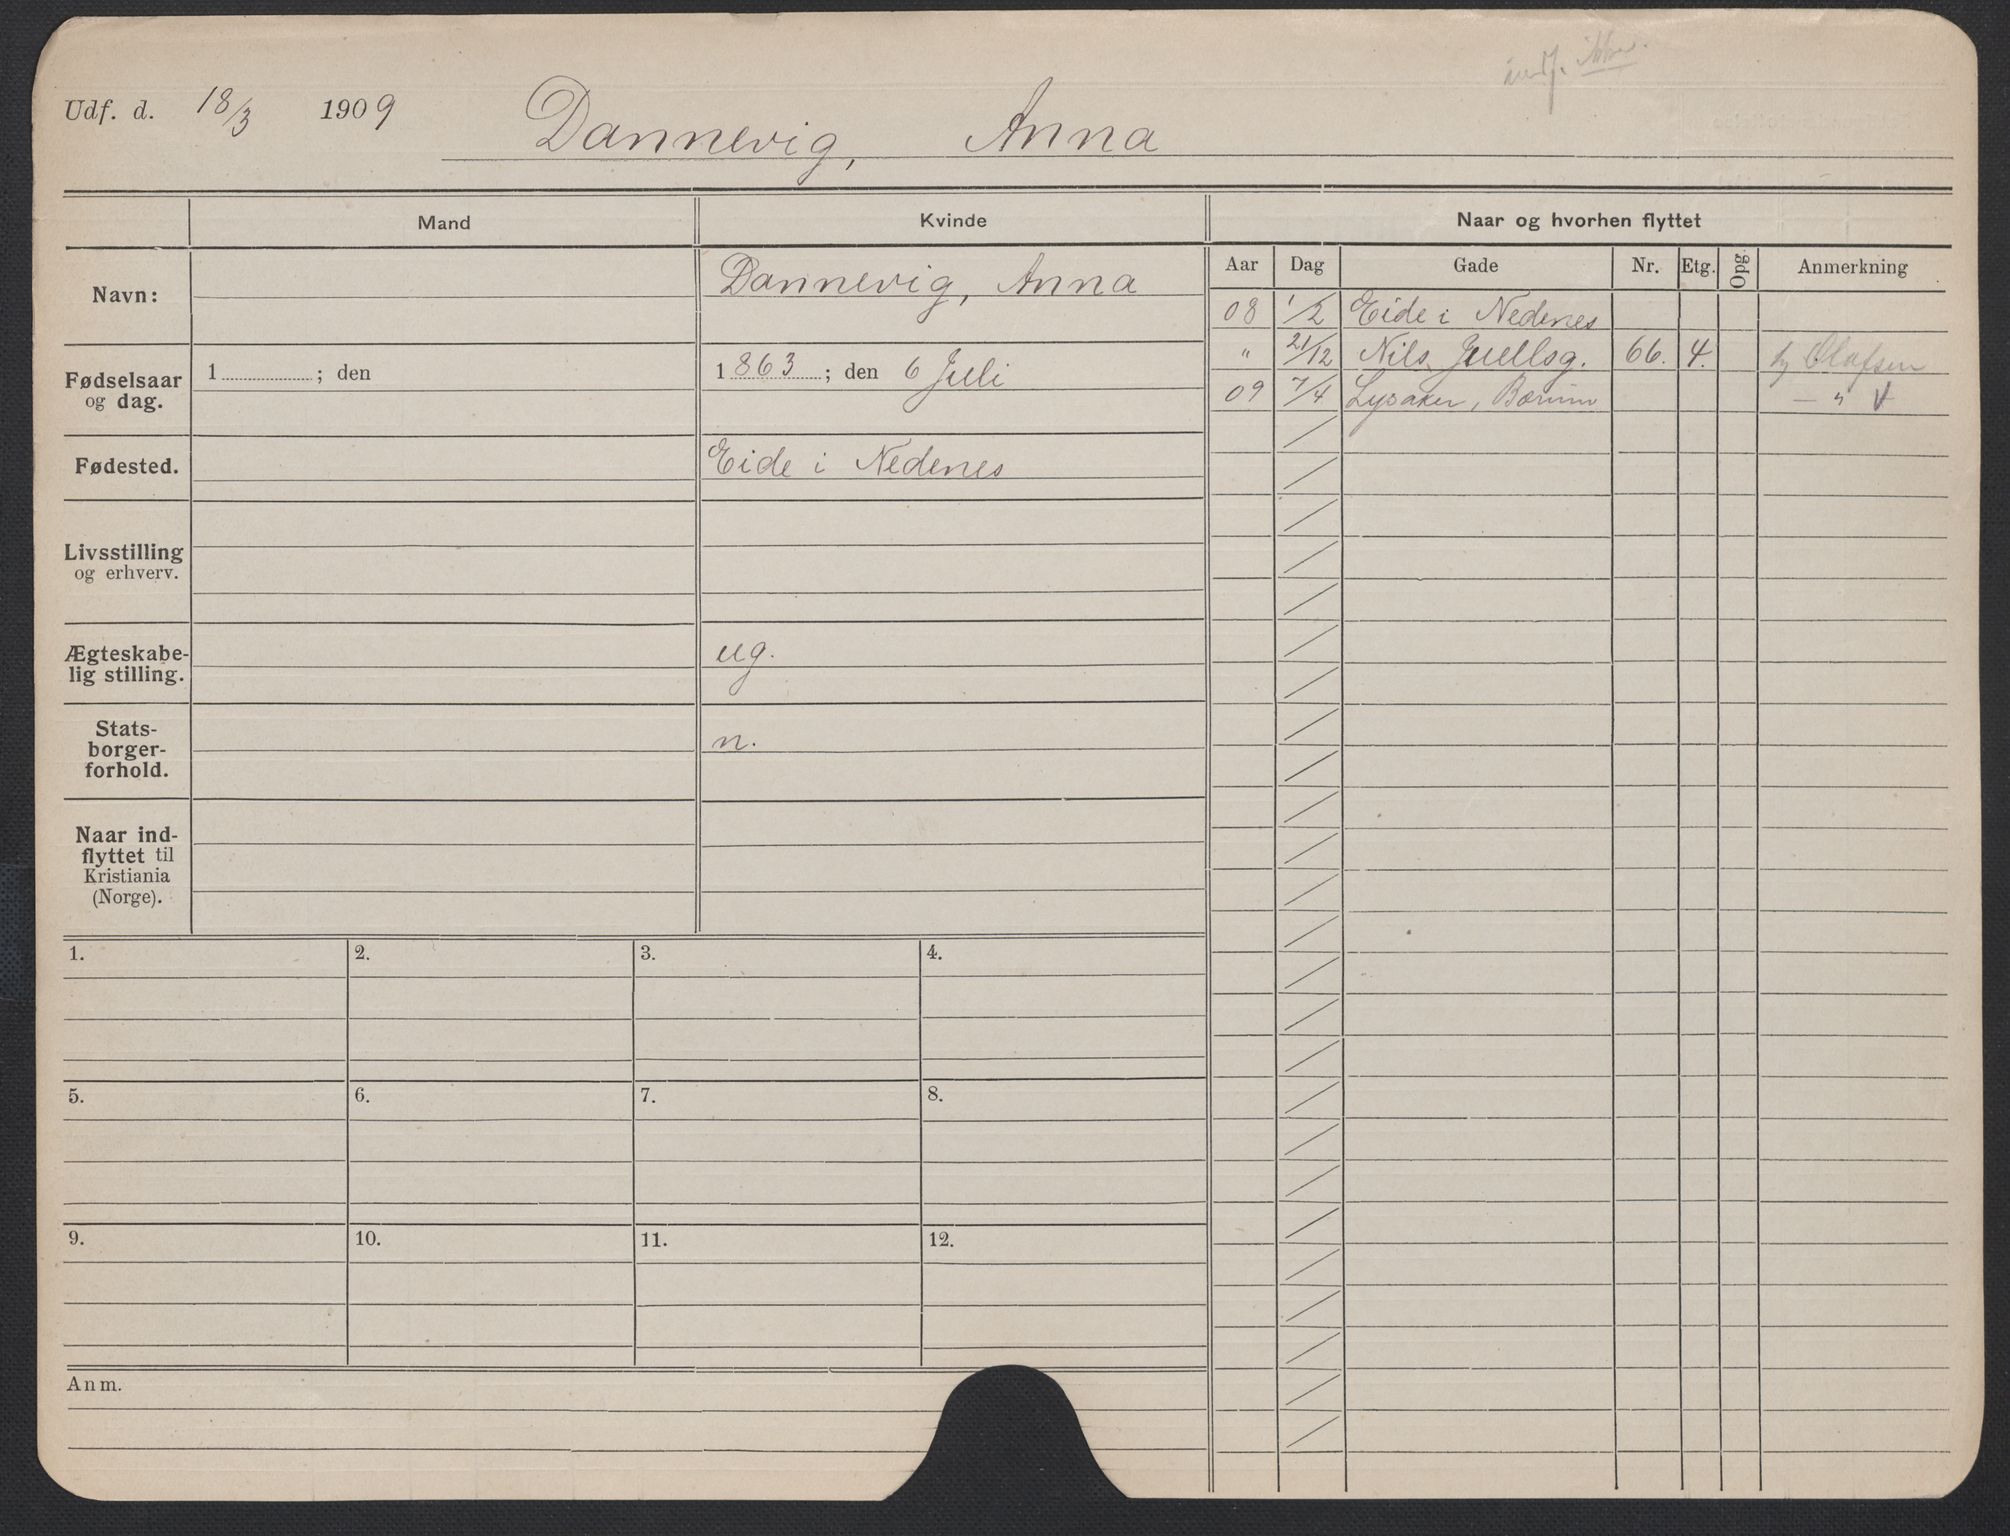 indf. ikke.
Udf. d. 18/3 1909 Dannevig, Anna
Mand Kvinde Naar og hvorhen flyttet
Aar Dag Gade Nr. Etg. Opg. Anmerkning
Navn: Dannevig, Anna
08 1/2 Eide i Nedenes
" 21/12 Nils Juellsg. 66. 4. Olafsen
09 7/4 Lysaker, Bærum — " V
Fødselsaar og dag. 1 ; den 1863 ; den 6 Juli
Fødested. Eide i Nedenes
Livsstilling
og erhverv.
Ægteskabe-
lig stilling. ug.
Stats-
borger-
forhold. n.
Naar ind-
flyttet til
Kristiania
(Norge).
1. 2. 3. 4.
5. 6. 7. 8.
9. 10. 11. 12.
Anm.